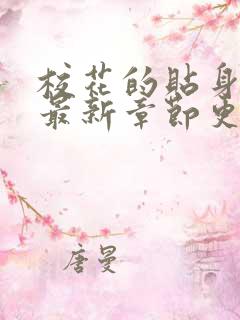 校花的贴身
最新章节更
唐曼